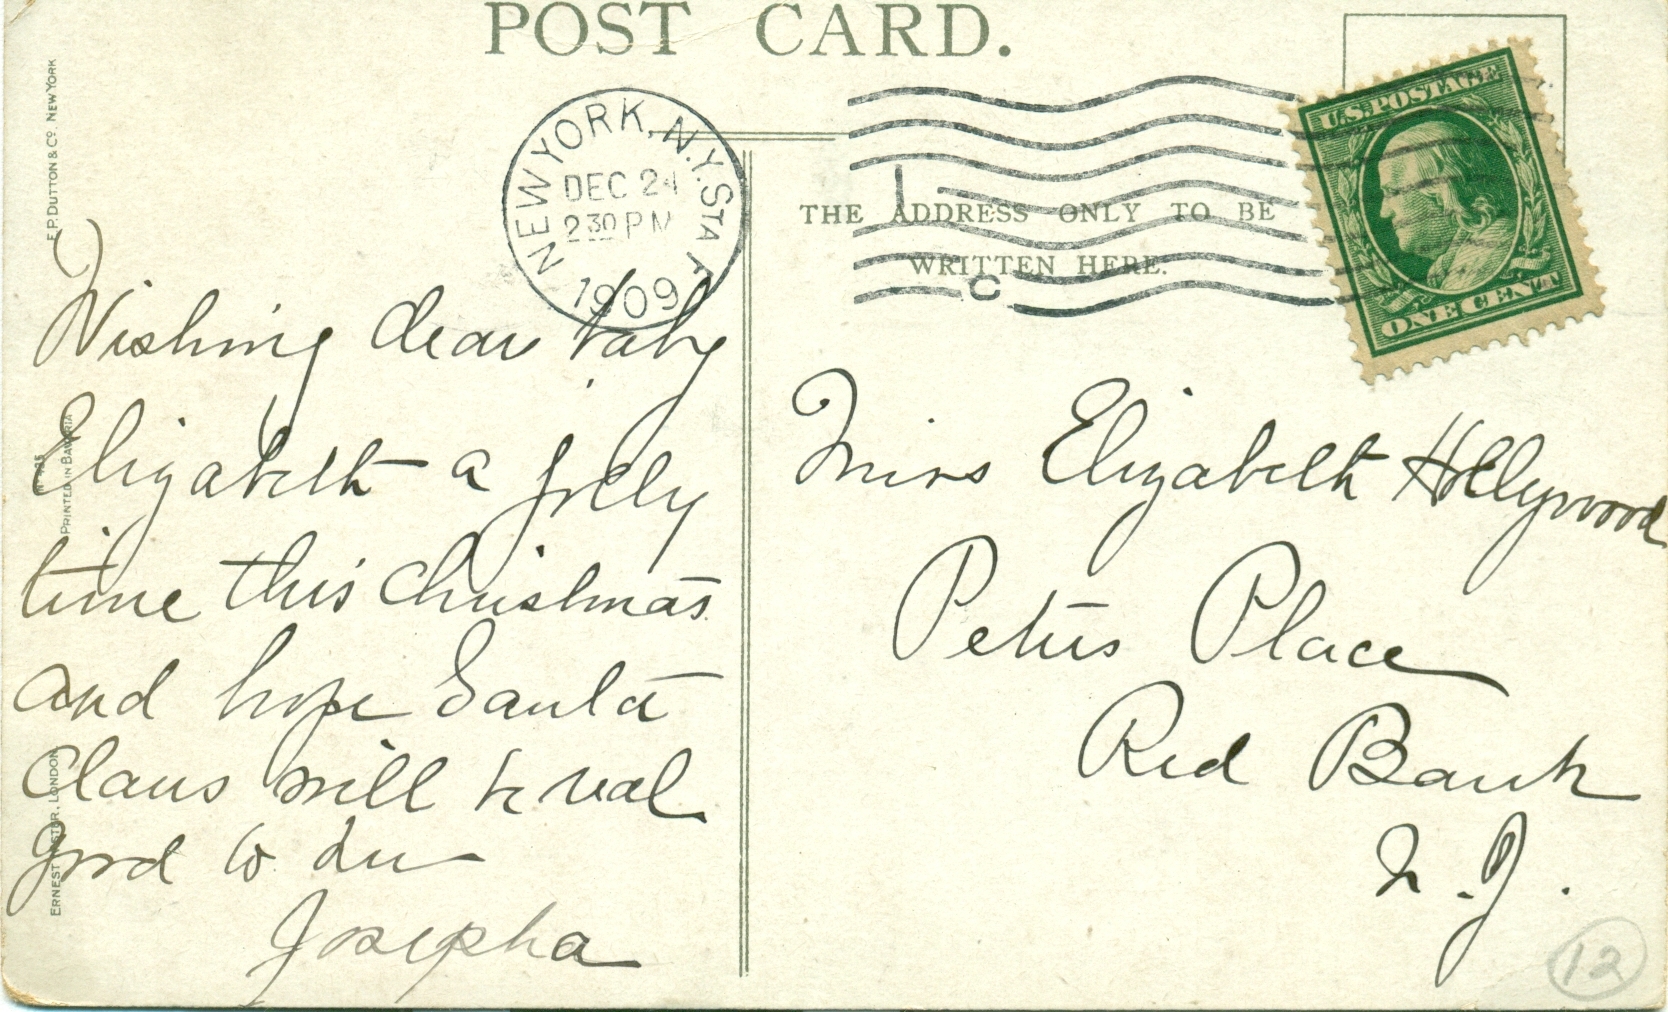 POST CARD.
NEW YORK, N.Y. STA F
DEC 24
2 30 PM
1909
U.S. POSTAGE
ONE CENT
THE ADDRESS ONLY TO BE
WRITTEN HERE.
E.P. DUTTON & CO. NEW YORK
PRINTED IN BAVARIA
ERNEST LONDON
Wishing dear baby
Elizabeth a jolly
time this Christmas
and hope Santa
Claus will be real
good to her
Josepha
Miss Elizabeth Hollywood
Peters Place
Red Bank
N.J.
12